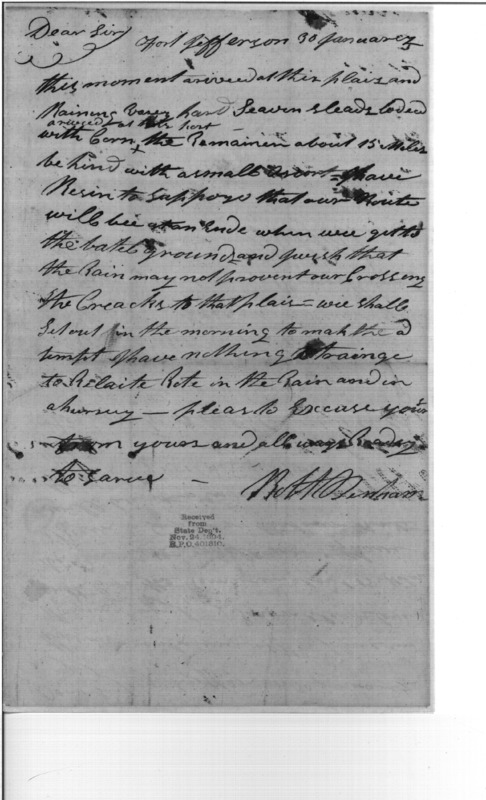 Dear Sir
Fort Jefferson 30 January
this moment arived at this plais and
Raining varey hard Seaven Sleads loded
arived at this port
with Corn x the Remainen about 15 Miles
behind with a small Escort I have
Resin to Suppose that our Route
will bee at an Ende when wee get to
the batel ground and I wish that
the Rain may not provent our Crossing
the Creacks to that plais = wee shall
Set out in the morning to mak the a
tempt I have nothing Strainge
to Relaite Rote in the Rain and in
a hurrey — pleas to Excuse your
from yours and all ways Readey
to sarve —
Robt Benham
Received
from
State Dep't.
Nov. 24, 1894.
R.P.O. 401810.